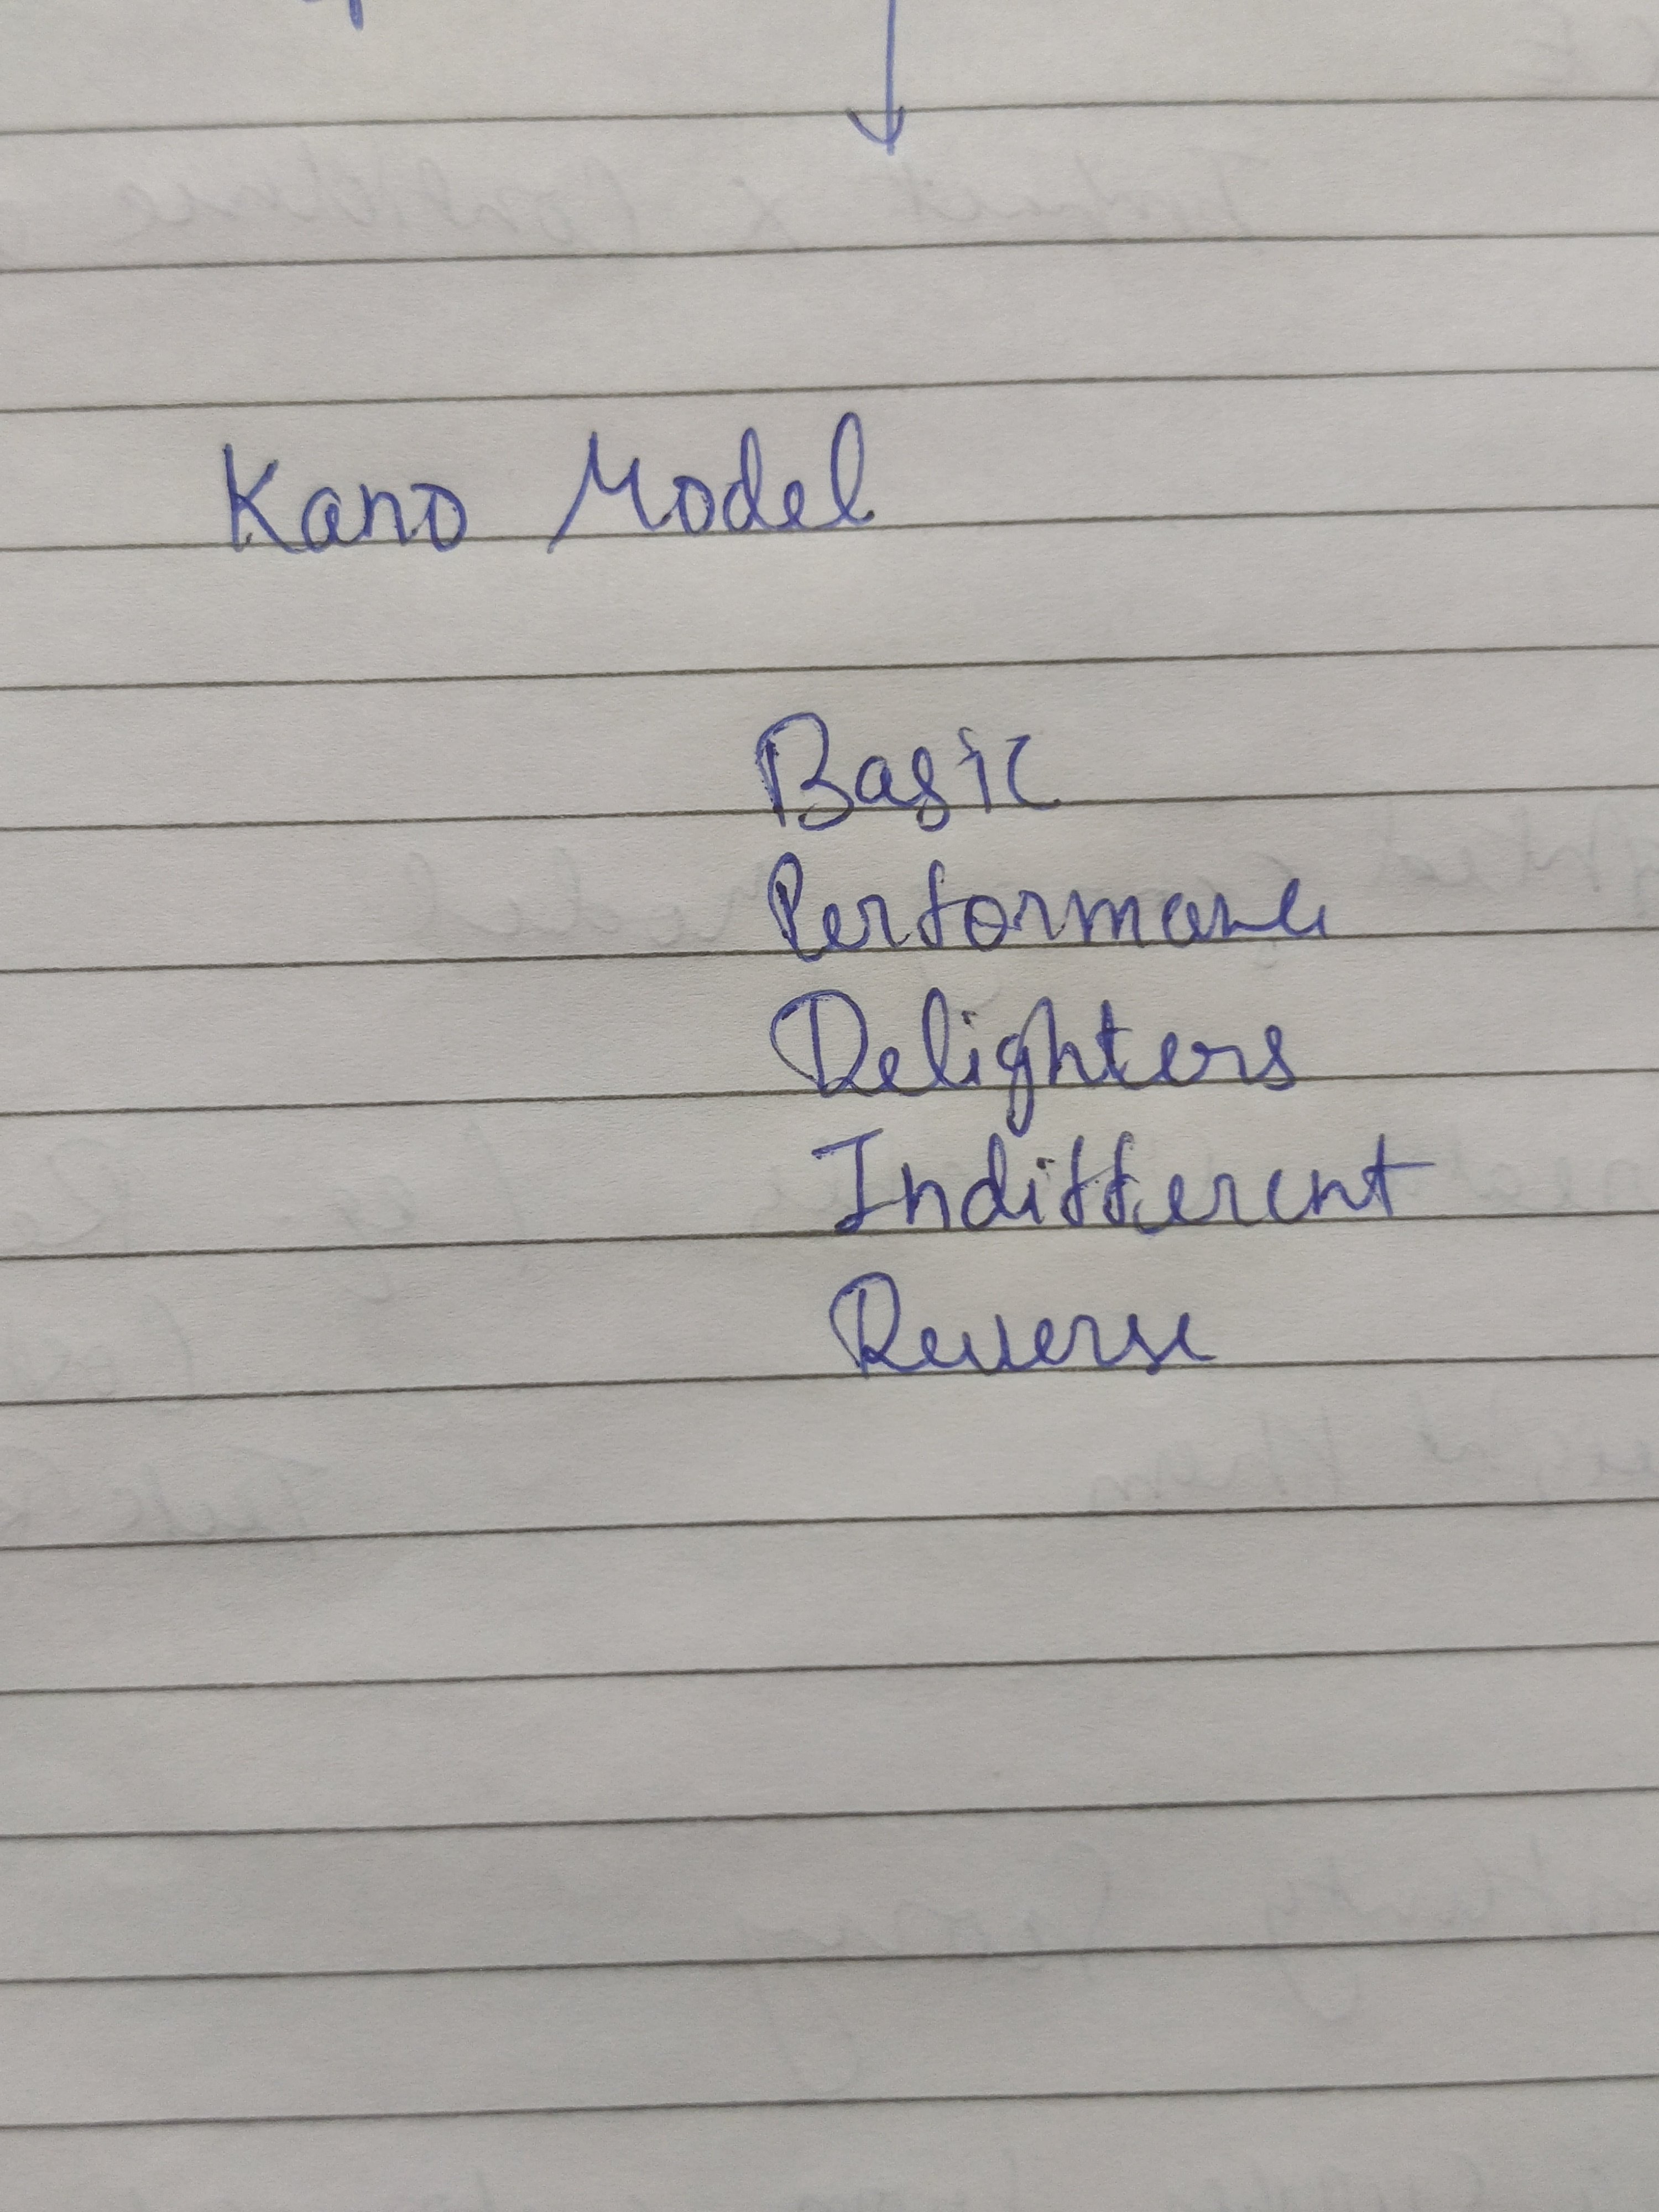 Kano Model
Basic
Performance
Delighters
Indifferent
Reverse